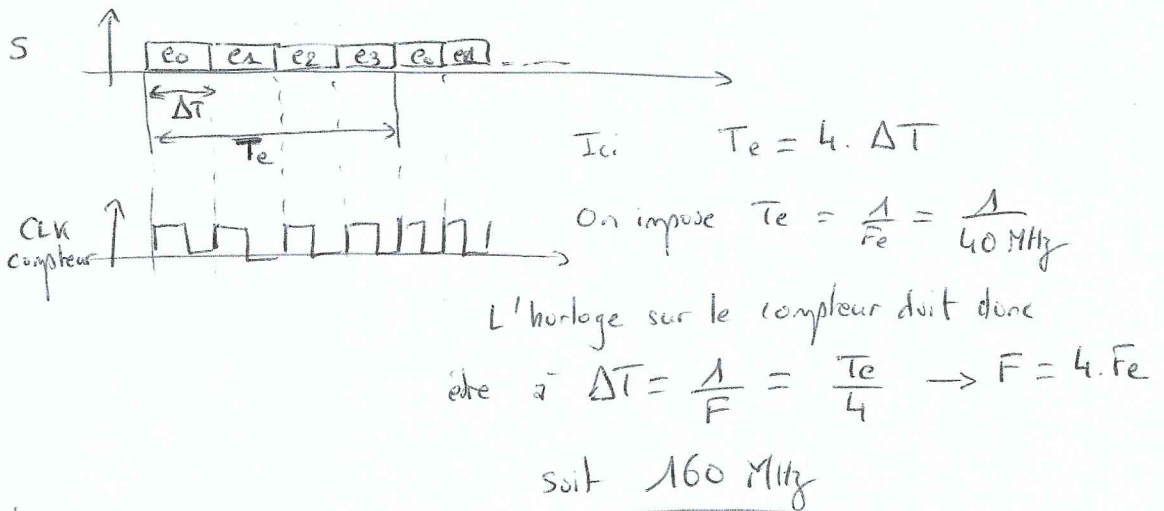 S
e0 e1 e2 e3 e0 e1 .. ——
ΔT
Te
Ici Te = 4. ΔT
CLK
compteur
On impose Te = 1/Fe = 1/40 MHz
L'horloge sur le compteur doit donc
être à ΔT = 1/F = Te/4 → F = 4. Fe
soit 160 MHz